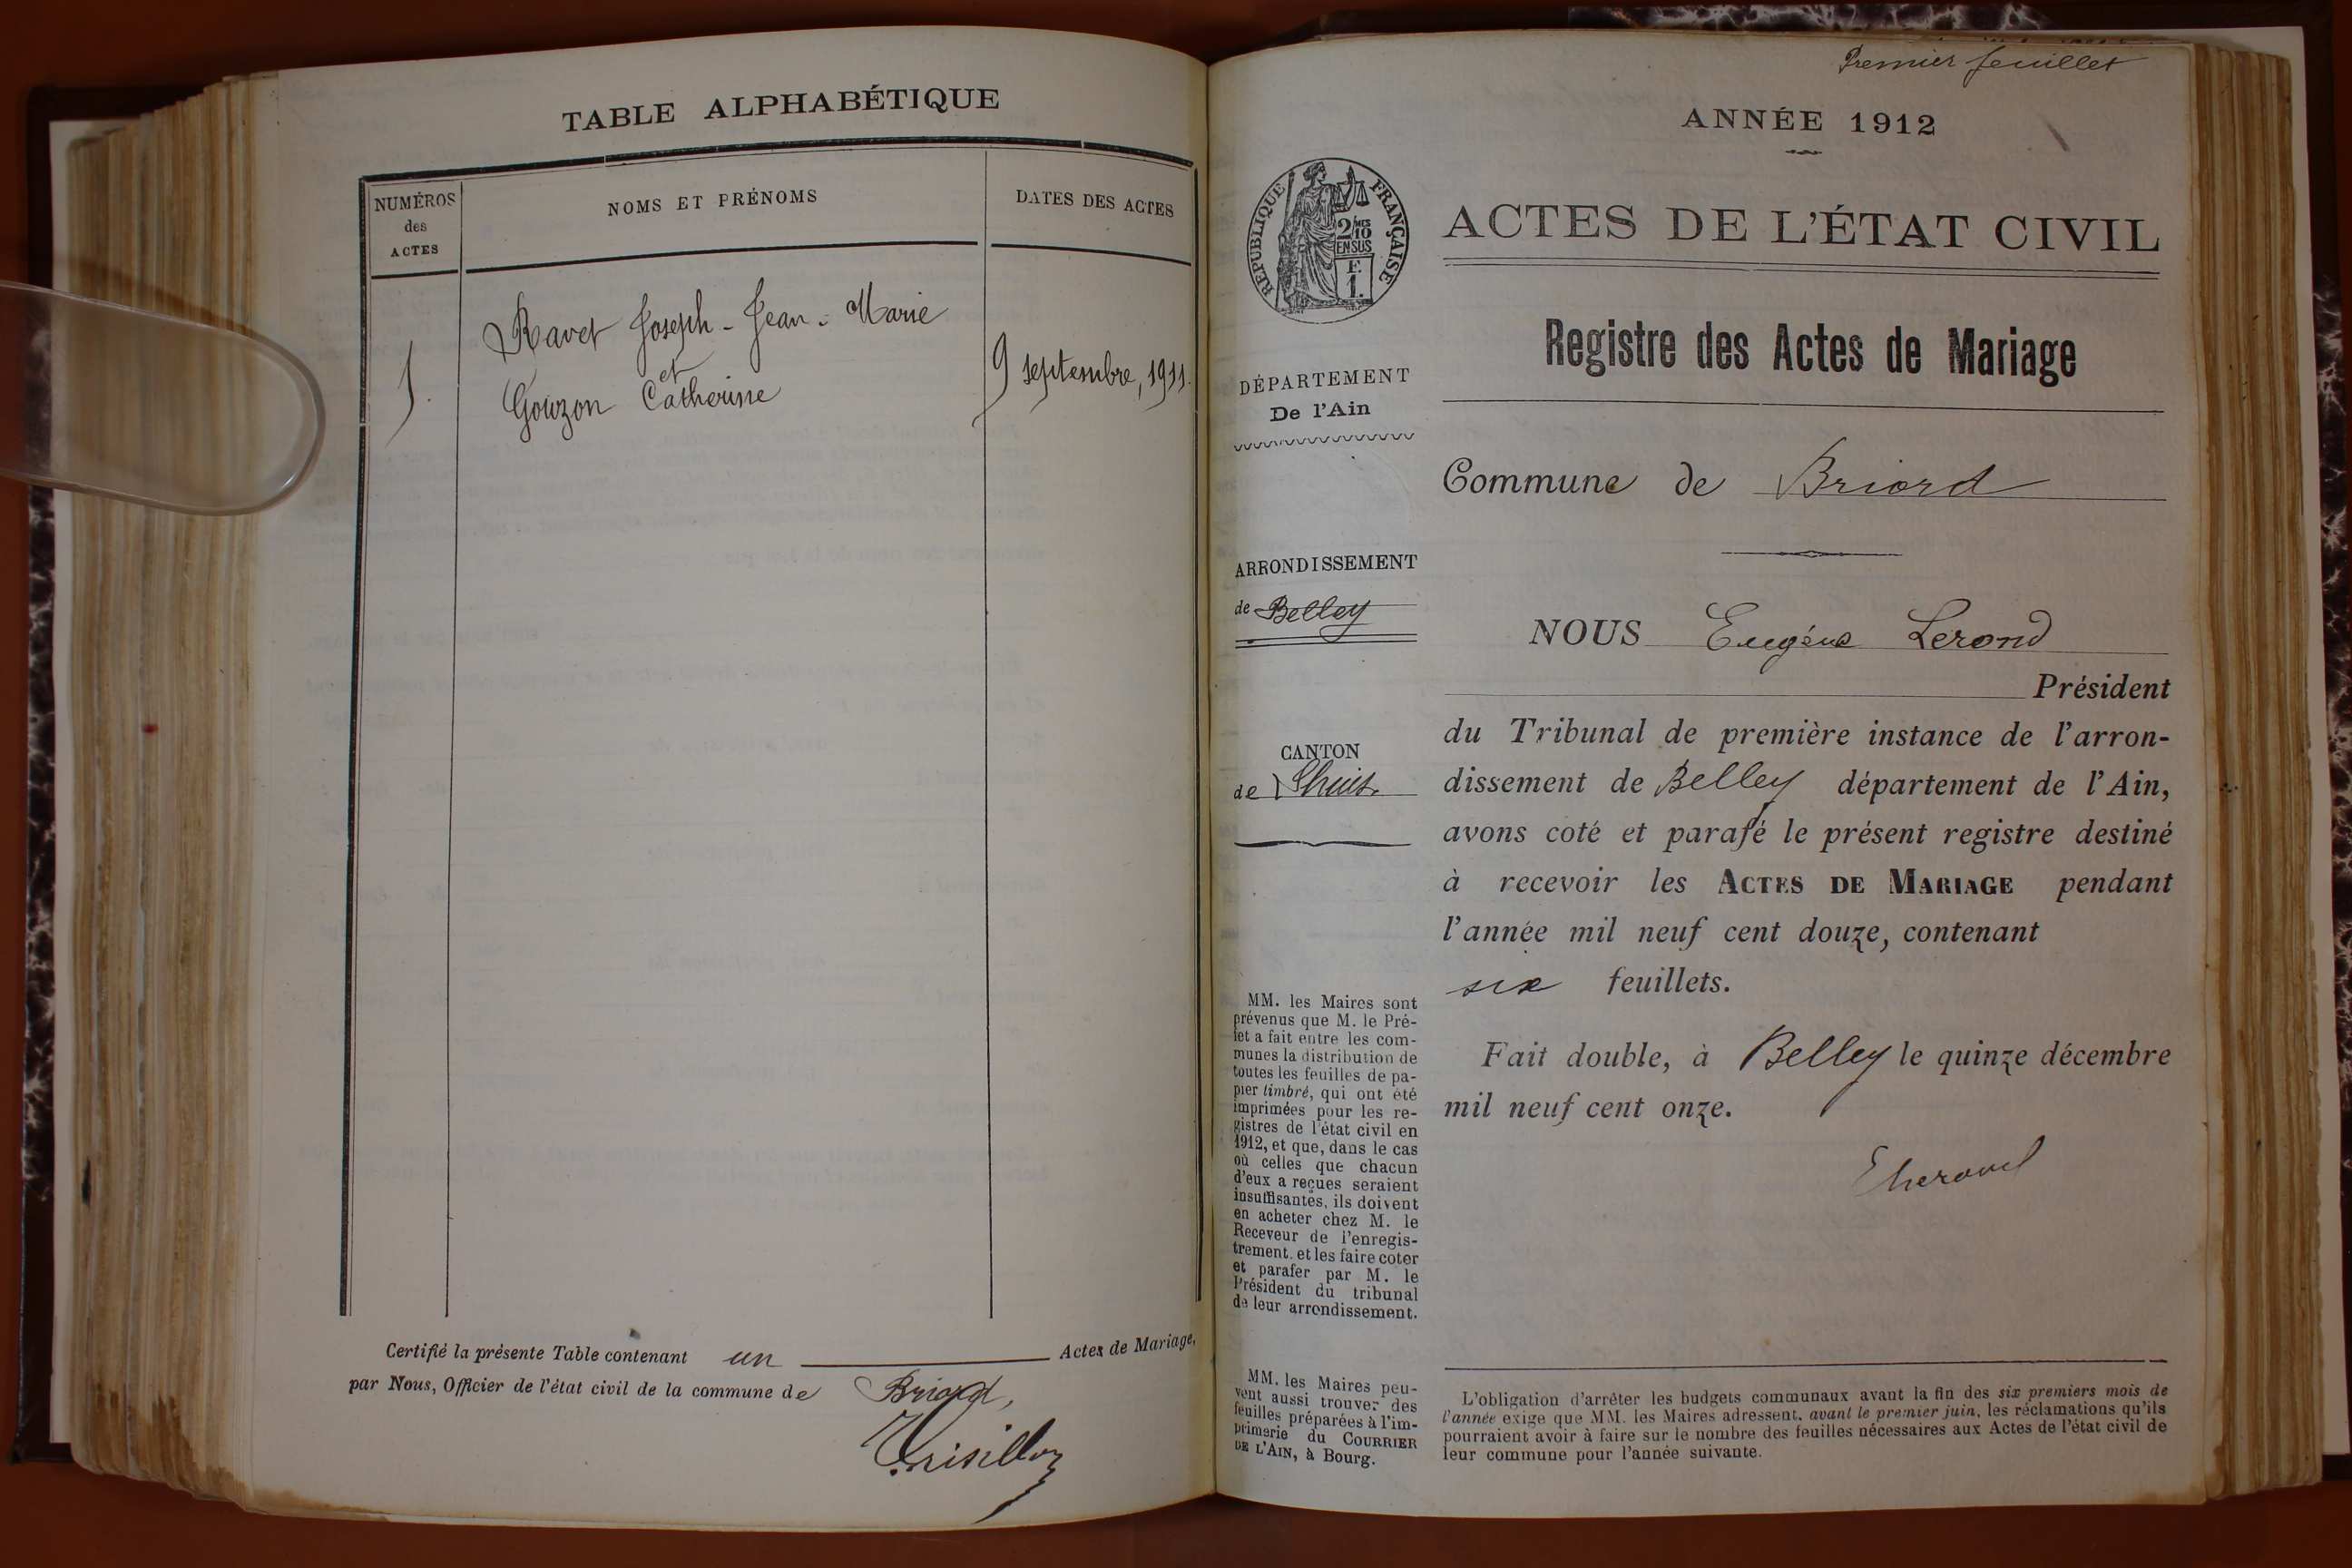 TABLE ALPHABÉTIQUE
NUMÉROS
des
ACTES
NOMS ET PRÉNOMS
DATES DES ACTES
1.
Ravet Joseph-Jean-Marie
et
Gouzon Catherine
9 septembre, 1911.
Certifié la présente Table contenant un Actes de Mariage,
par Nous, Officier de l'état civil de la commune de Briord,
Premier feuillet
ANNÉE 1912
RÉPUBLIQUE FRANÇAISE
2/10 EN SUS
F. 1.
ACTES DE L'ÉTAT CIVIL
Registre des Actes de Mariage
DÉPARTEMENT
De l'Ain
Commune de Briord
ARRONDISSEMENT
de Belley
NOUS Eugène Lerond
Président
CANTON
de Lhuis
du Tribunal de première instance de l'arron-
dissement de Belley département de l'Ain,
avons coté et parafé le présent registre destiné
à recevoir les ACTES DE MARIAGE pendant
l'année mil neuf cent douze, contenant
six feuillets.
Fait double, à Belley le quinze décembre
mil neuf cent onze.
ELerond
MM. les Maires sont
prévenus que M. le Pré-
fet a fait entre les com-
munes la distribution de
toutes les feuilles de pa-
pier timbré, qui ont été
imprimées pour les re-
gistres de l'état civil en
1912, et que, dans le cas
où celles que chacun
d'eux a reçues seraient
insuffisantes, ils doivent
en acheter chez M. le
Receveur de l'enregis-
trement. et les faire coter
et parafer par M. le
Président du tribunal
de leur arrondissement.
MM. les Maires peu-
vent aussi trouver des
feuilles préparées à l'im-
primerie du COURRIER
DE L'AIN, à Bourg.
L'obligation d'arrêter les budgets communaux avant la fin des six premiers mois de
l'année exige que MM. les Maires adressent, avant le premier juin, les réclamations qu'ils
pourraient avoir à faire sur le nombre des feuilles nécessaires aux Actes de l'état civil de
leur commune pour l'année suivante.